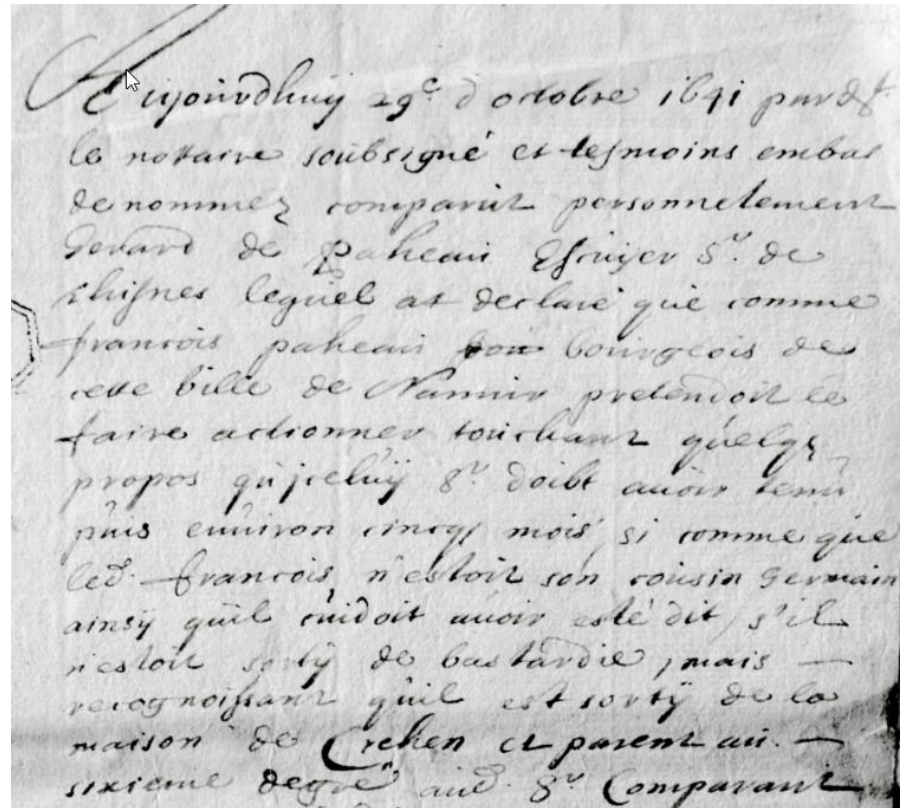 Aujourdhuy 29e d octobre 1641 pardt
le notaire soubsigné et tesmoins embas
denommez comparut personnelement
Gerard de Paheau Escuyer Sr. de
lequel at declaré que comme
francois paheau bourgeois de
cette ville de Namur pretendoit le
faire actionner touchant quelqs
propos qu'jceluÿ Sr. doibt auoir tenu
puis enuiron cincq mois, si comme que
led. francois n'estoit son cousin Germain
ainsÿ quil cuidoit auoir esté dit, s'il
n'estoit sortÿ de bastardie, mais —
recognoissant quil est sortÿ de la
maison de Crehen et parent au —
sixieme degré aud. Sr Comparant